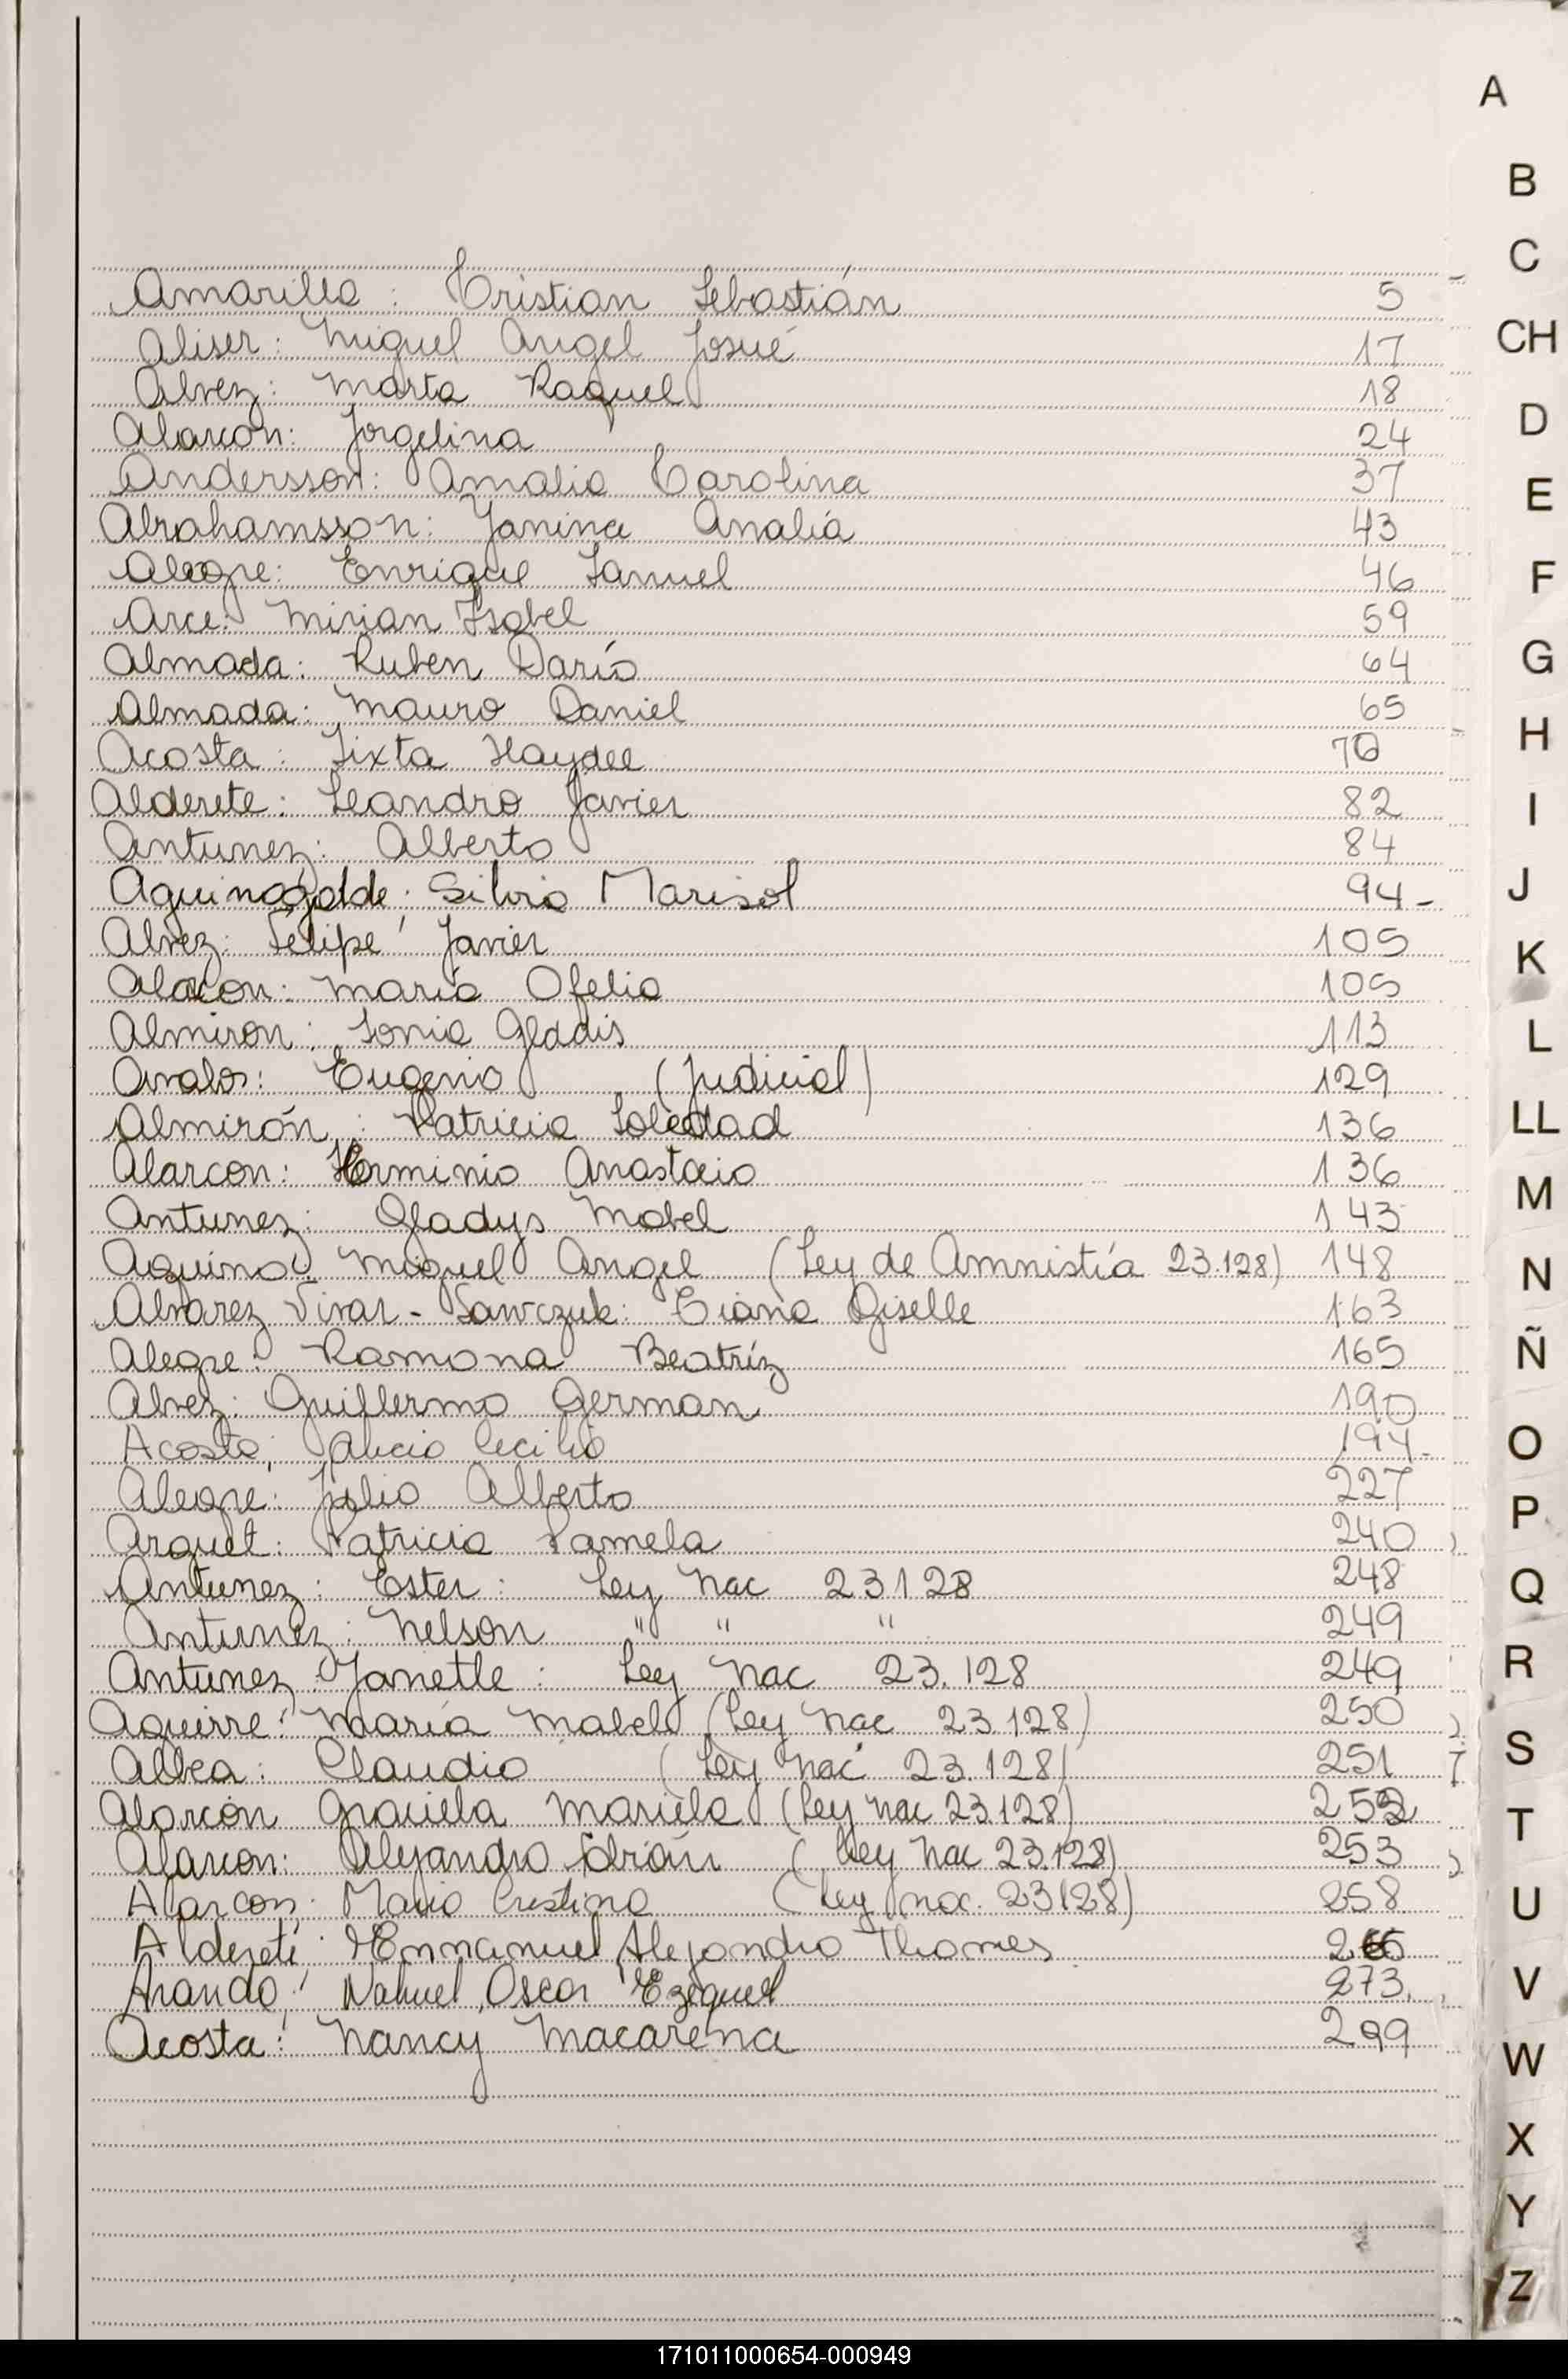 Amarilla: Cristian Sebastián 5
Aliser: Miguel Angel Josué 17
Alvez: Marta Raquel 18
Alarcon: Jorgelina 24
Andersson: Amalia Carolina 37
Abrahamsson: Yanina Analía 43
Alegre: Enrique Samuel 46
Arce: Mirian Isabel 59
Almada: Ruben Darío 64
Almada: Mauro Daniel 65
Acosta: Sixta Haydee 70
Alderete: Leandro Javier 82
Antunez: Alberto 84
Aguinagalde: Silvia Marisol 94-
Alvez: Felipe Javier 105
Alarcon: María Ofelia 105
Almiron: Sonia Gladis 113
Avalos: Eugenio (Judicial) 129
Almirón: Patricia Soledad 136
Alarcon: Herminio Anastacio 136
Antunez: Gladys Mabel 143
Aquino: Miguel Angel (Ley de Amnistía 23.128) 148
Alvarez Vivar - Sawczuk: Eiana Giselle 163
Alegre: Ramona Beatríz 165
Alvez: Guillermo German 190
Acosta; Cecilia 194-
Alegre: Julio Alberto 227
Arguet: Patricia Pamela 240
Antunez: Ester: Ley Nac 23128 248
Antunez: Nelson " " " 249
Antunez: Yanette: Ley Nac 23.128 249
Aguirre: María Mabel (Ley Nac 23.128) 250
Albea: Claudio (Ley Nac 23.128) 251
Alarcón Graciela Mariela (Ley Nac 23.128) 252
Alarcon: Alejandro Adrián (Ley Nac 23.128) 253
Alarcon: María Cristina (Ley nac. 23128) 258
Alderete: Emmanuel Alejandro Thomas 265
Aranda: Nahuel Oscar Ezequiel 273
Acosta: Nancy Macarena 299
A
B
C
CH
D
E
F
G
H
I
J
K
L
LL
M
N
Ñ
O
P
Q
R
S
T
U
V
W
X
Y
Z
171011000654-000949